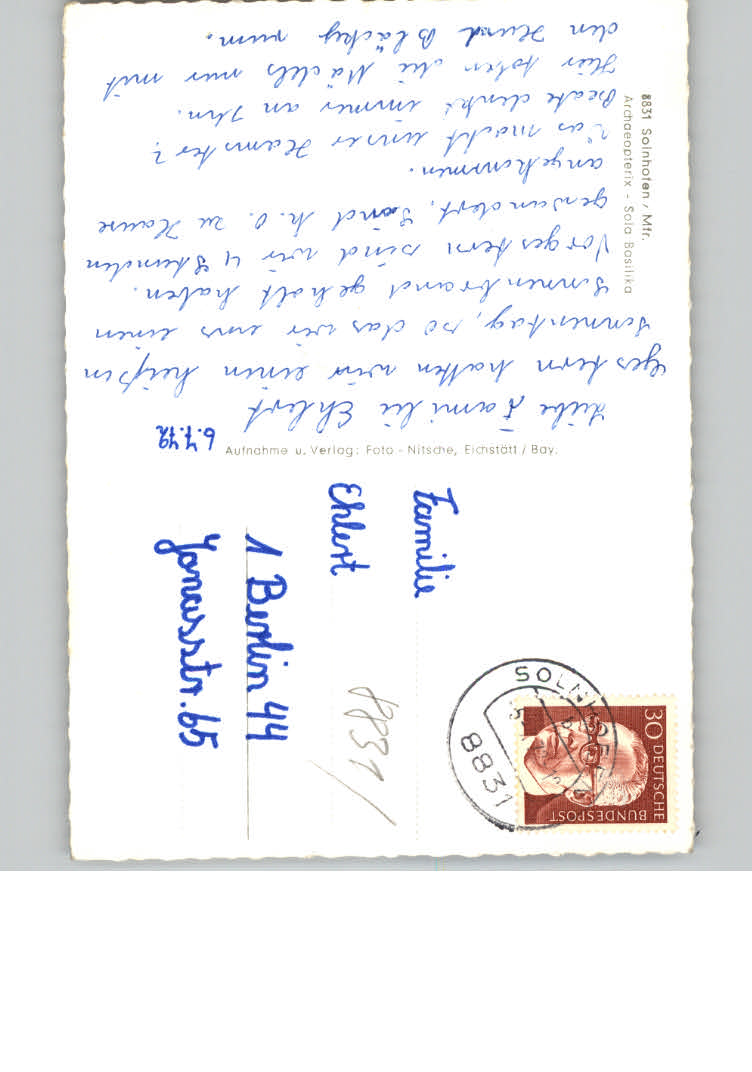 8831 Solnhofen / Mfr.
Archaeopterix - Sola Basilika
6.7.72
Liebe Familie Ehlert
Gestern hatten wir einen heißen
Sonnentag, so das wir uns einen
Sonnenbrand geholt haben.
Vorgestern sind wir 4 Stunden
gewandert. Sind k.o. zu Hause
angekommen.
Was macht unser Hamster?
Beate denkt immer an Ihn.
Hier toben die Mädels nur mit
den Hund Bläcky rum.
Aufnahme u. Verlag: Foto - Nitsche, Eichstätt / Bay.
Familie
Ehlert
1 Berlin 44
Jonasstr. 65
8831
SOLNHOFEN
8831
30 DEUTSCHE
BUNDESPOST